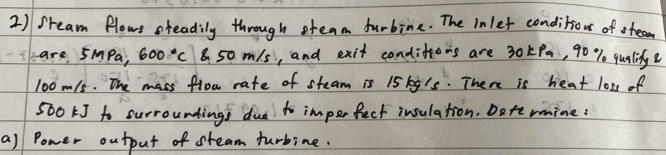 2) Steam flows steadily through steam turbine. The inlet conditions of steam
are 5MPa, 600 °C & 50 m/s, and exit conditions are 30 kPa, 90% quality &
100 m/s. The mass flow rate of steam is 15 kg/s. There is heat loss of
500 kJ to surroundings due to imperfect insulation. Determine:
a) Power output of steam turbine.